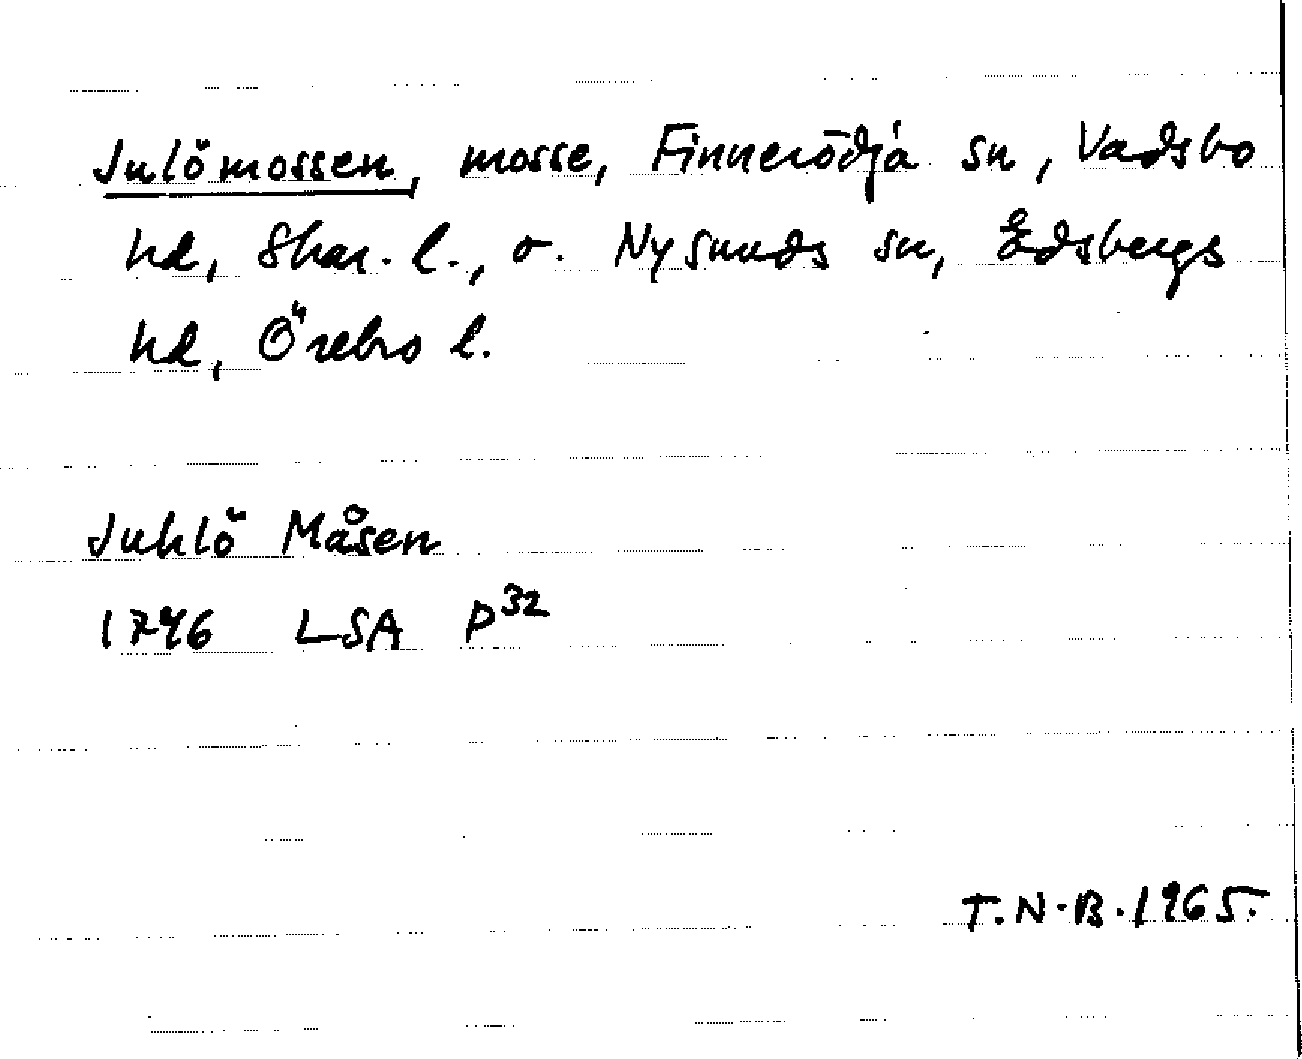 Julömossen, mosse, Finnerödja sn, Vadsbo
hd, Skar. l., o. Nysunds sn, Edsbergs
hd, Örebro l.
Juhlö Måsen
1746 LSA P32
T.N.B. 1965.